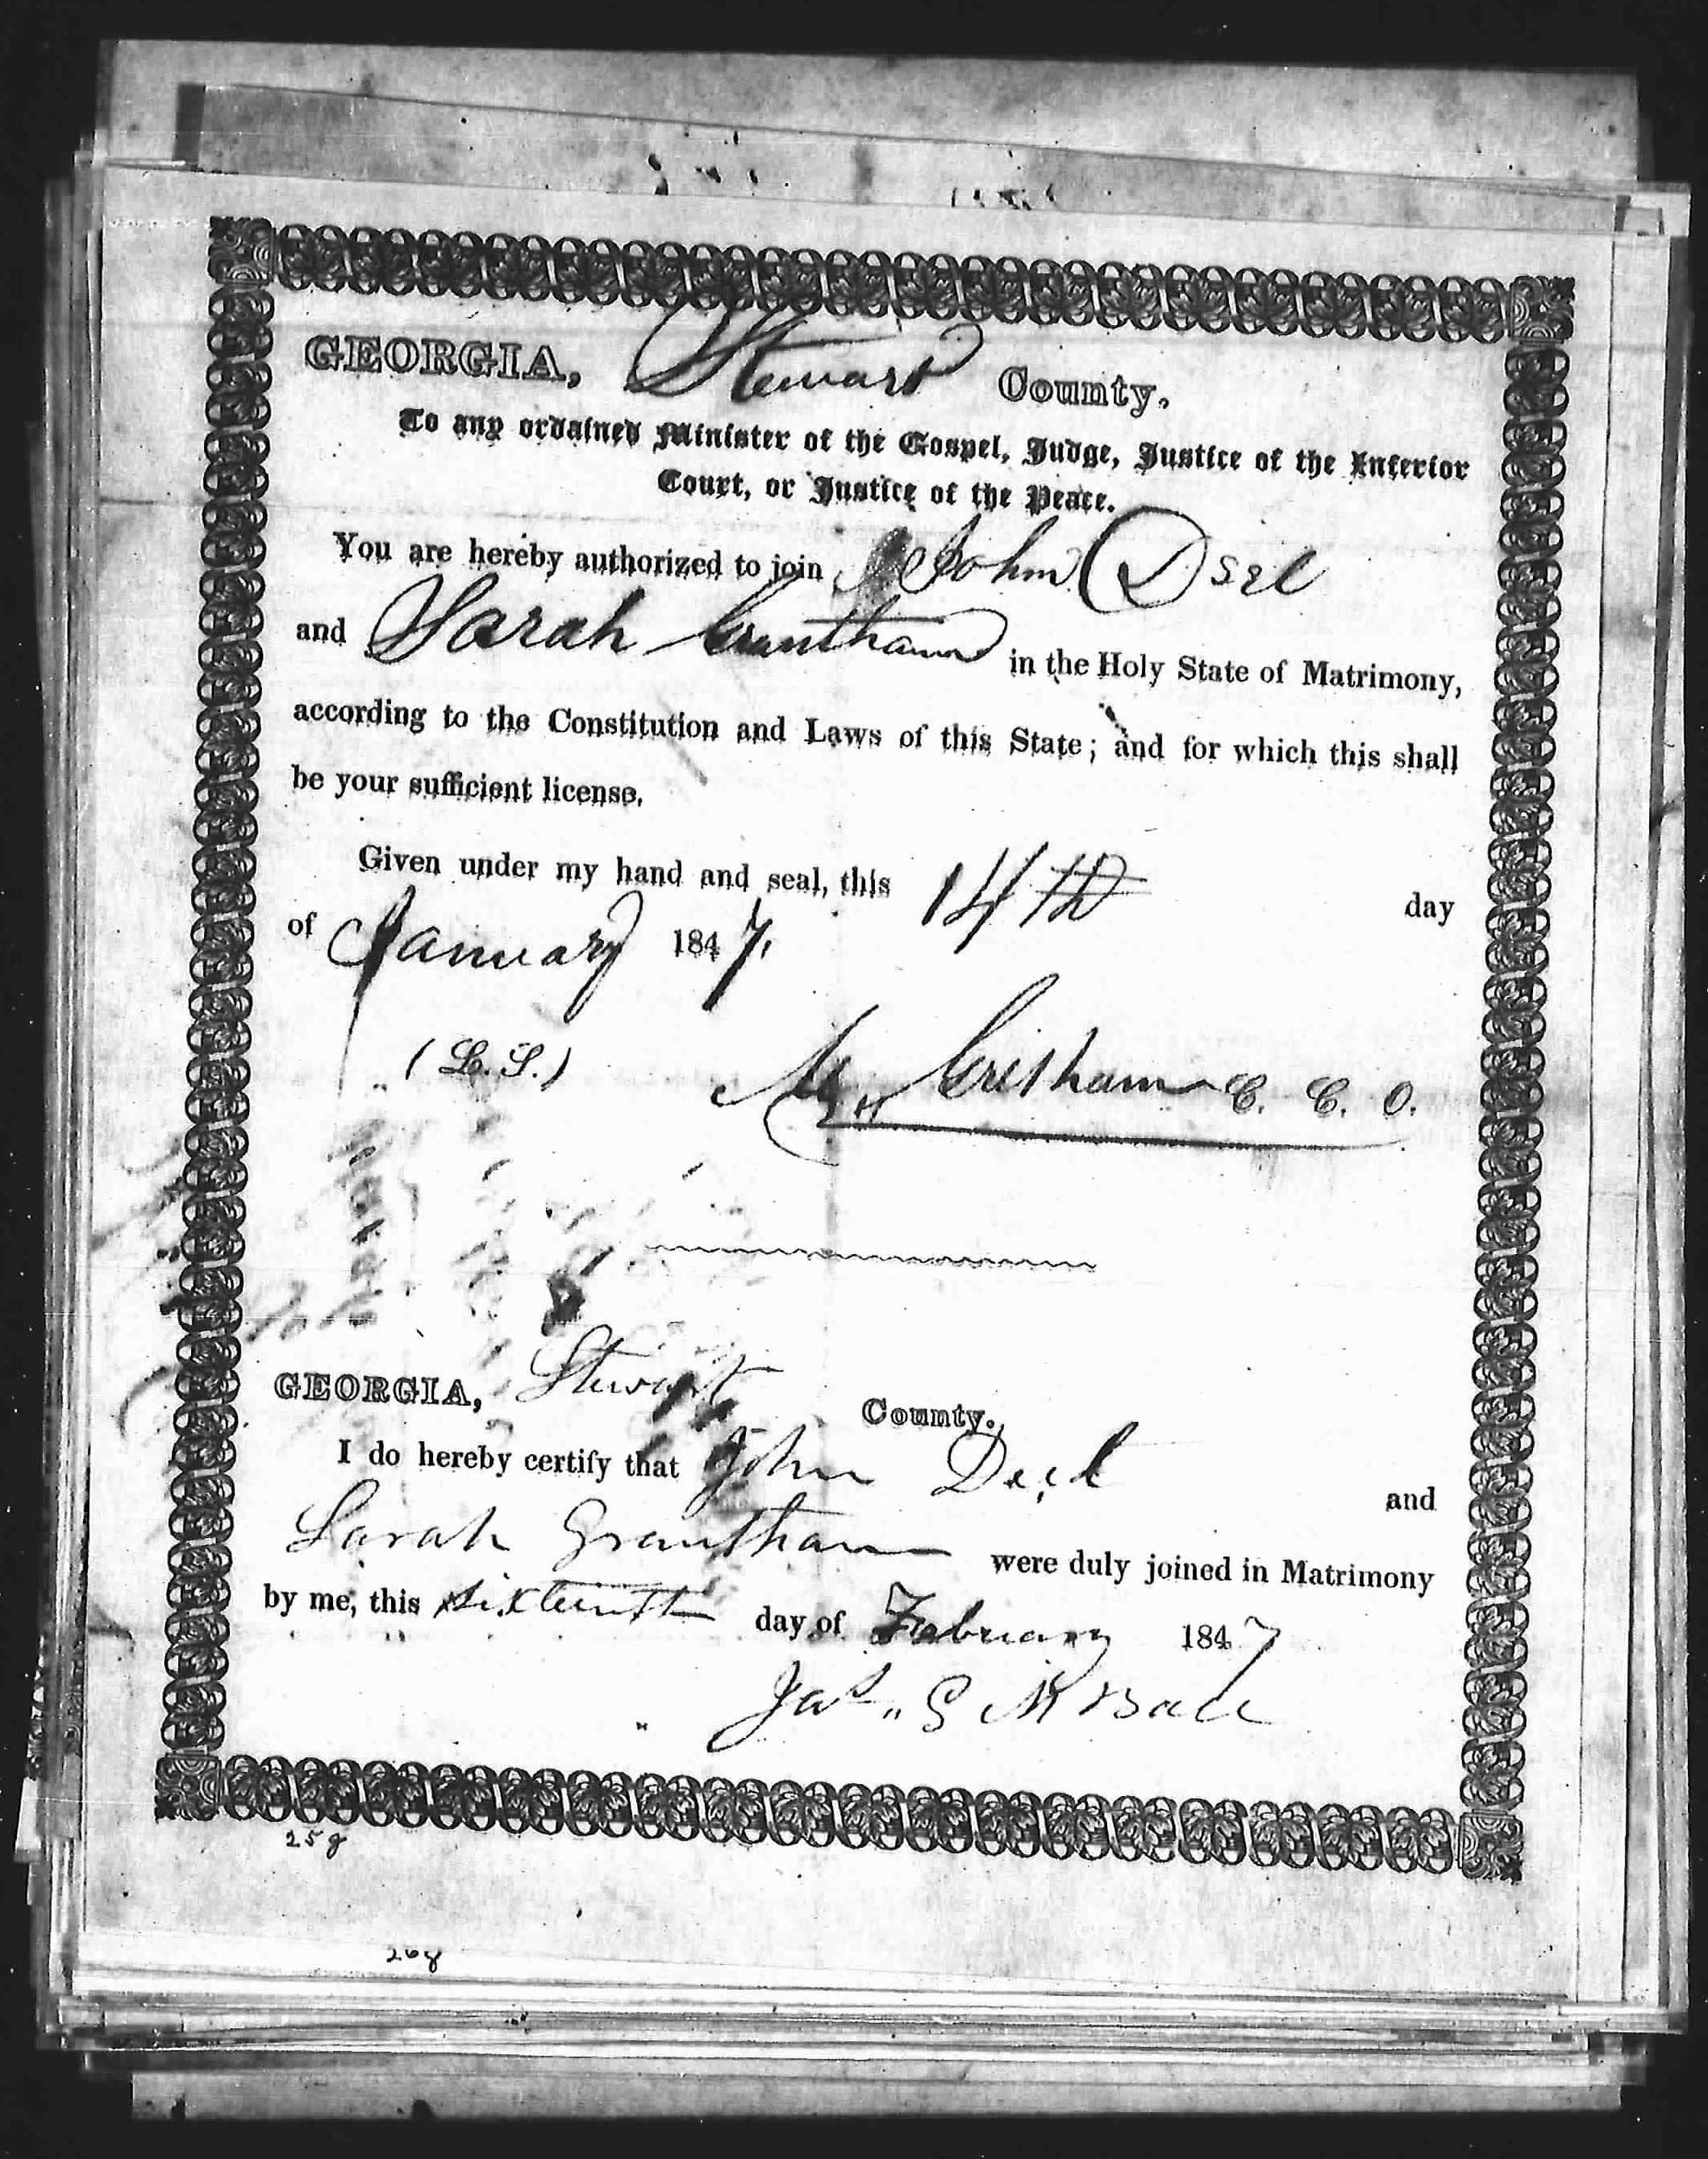 GEORGIA, Stewart County,
To any ordained Minister of the Gospel, Judge, Justice of the Inferior
Court, or Justice of the Peace.
You are hereby authorized to join John
and Sarah Grantham in the Holy State of Matrimony,
according to the Constitution and Laws of this State; and for which this shall
be your sufficient license.
Given under my hand and seal, this 14th day
of January 1847.
(L.S.) Grisham C. C. O.
GEORGIA, Stewart County.
I do hereby certify that John and
Sarah Grantham were duly joined in Matrimony
by me, this sixteenth day of February 1847
Jas